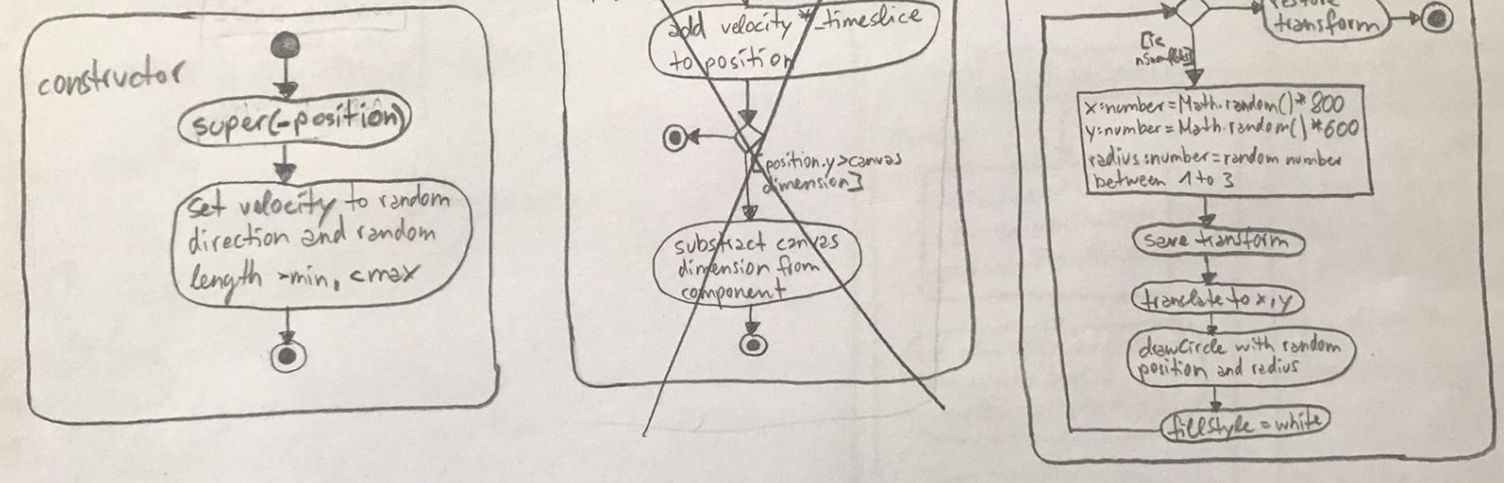 constructor
super(-position)
set velocity to random
direction and random
length >min, <max
add velocity * _timeslice
to position
[position.y>canvas
dimension]
substract canvas
dimension from
component
transform
x:number=Math.random()*800
y:number=Math.random()*600
radius:number=random number
between 1 to 3
save transform
translate to x,y
drawCircle with random
position and radius
fillStyle = white